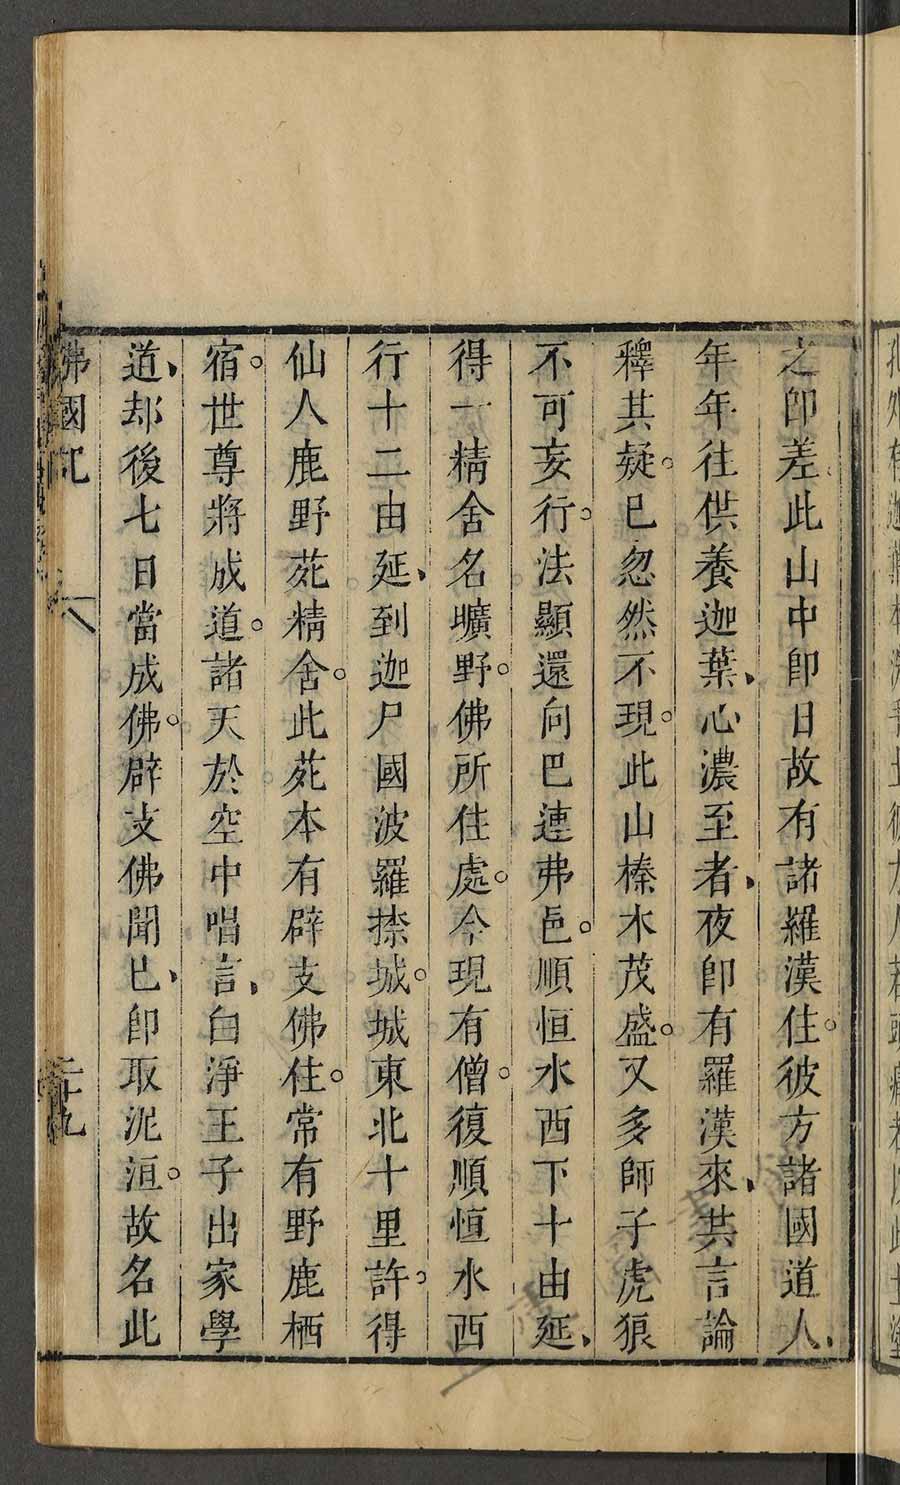 之卽差、此山中卽日故有諸羅漢住。彼方諸國道人、
年年往供養迦葉、心濃至者、夜卽有羅漢來、共言論
釋其疑。已忽然不現。此山榛木茂盛。又多師子虎狼
不可妄行。法顯還向巴連弗邑。順恒水西下十由延、
得一精舍名曠野。佛所住處。今現有僧。復順恒水西
行十二由延、到迦尸國波羅㮈城。城東北十里許。得
仙人鹿野苑精舍。此苑本有辟支佛住。常有野鹿栖
宿。世尊將成道。諸天於空中唱言、白淨王子出家學
道、却後七日當成佛。辟支佛聞已、卽取泥洹。故名此
佛國記
二十九